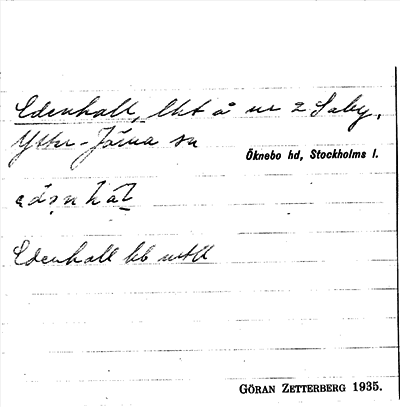 Edenhall, lht å nr 2 Saby,
Ytter-Järna sn
Öknebo hd, Stockholms l.
Edenhall kb
GÖRAN ZETTERBERG 1935.